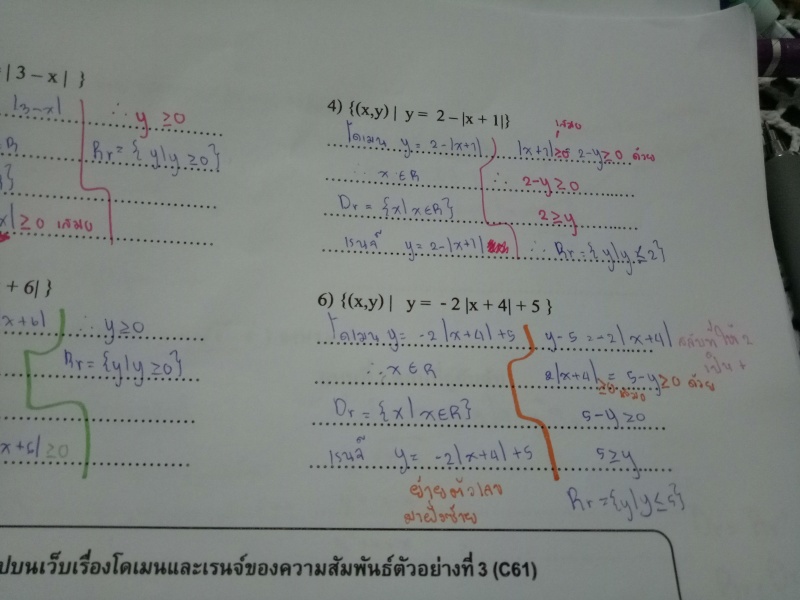 | 3 – x | }
|3-x|
∴ y ≥0
Rr = { y|y ≥0}
x| ≥ 0 เสมอ
+ 6| }
x+6|
∴ y≥0
Rr = {y|y ≥0}
x+6| ≥0
4) {(x,y) | y = 2 – |x + 1|}
โดเมน y = 2-|x+1|
∴ x ∈ R
Dr = {x| x∈R}
เรนจ์ y = 2-|x+1|
เสมอ
|x+1|≥0 2-y≥0 ด้วย
∴ 2-y≥0
2≥y
∴ Rr = {y|y ≤2}
6) {(x,y) | y = - 2 |x + 4| + 5 }
โดเมน y = -2|x+4|+5
∴ x ∈ R
Dr = {x| x∈R}
เรนจ์ y = -2|x+4|+5
ย้ายตัวเลข
มาฝั่งซ้าย
y-5 = -2|x+4|
ให้ 2
เป็น +
2|x+4| = 5-y≥0 ด้วย
≥0 เสมอ
5-y≥0
5≥y
Rr = {y|y≤5}
ปบนเว็บเรื่องโดเมนและเรนจ์ของความสัมพันธ์ตัวอย่างที่ 3 (C61)